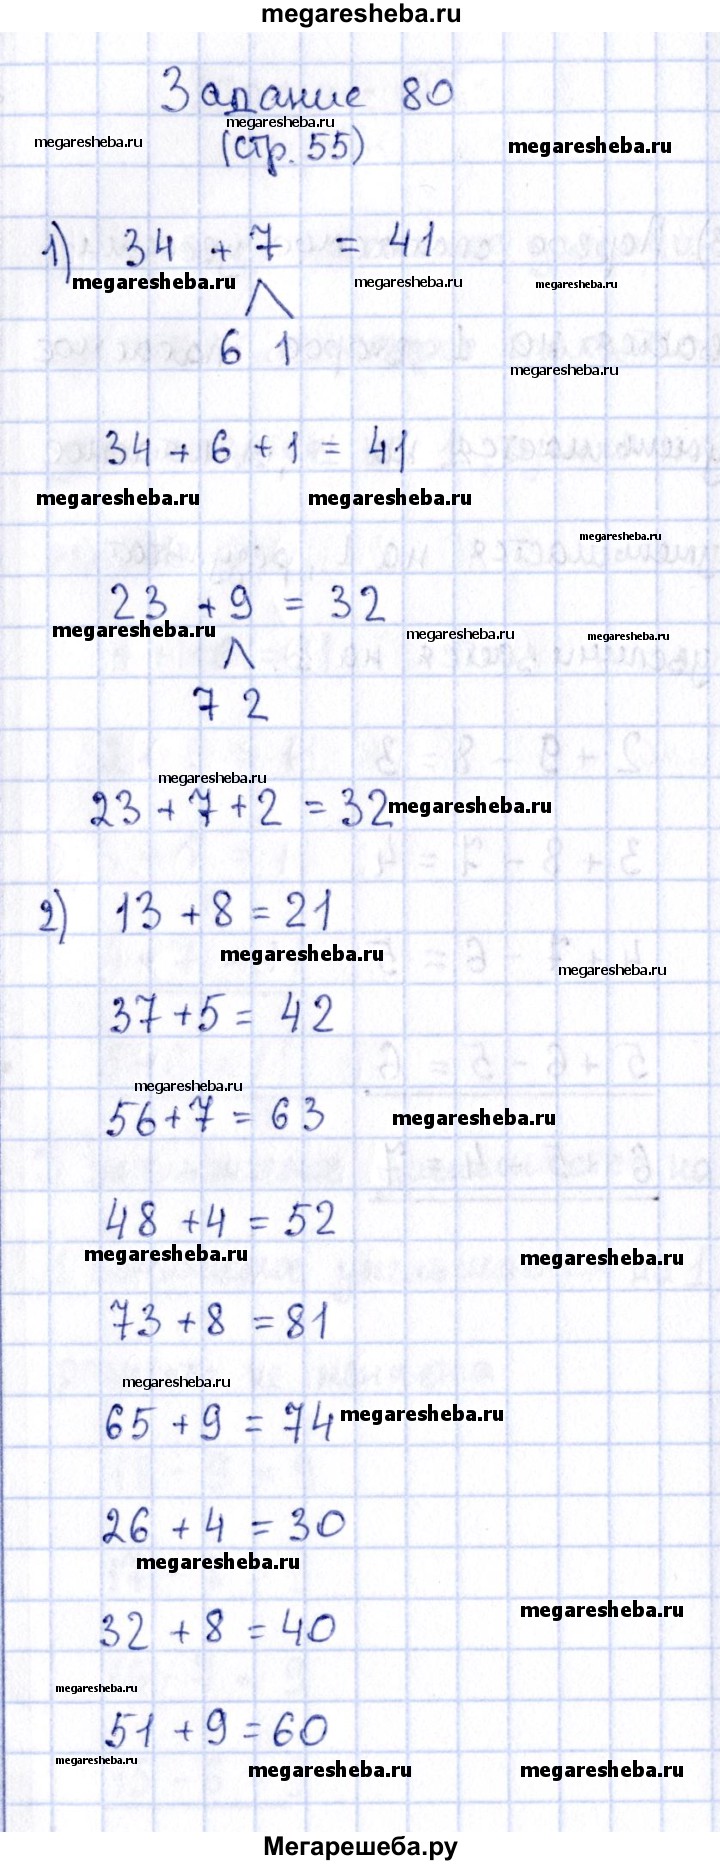 megaresheba.ru
Задание 80
megaresheba.ru
megaresheba.ru (стр. 55) megaresheba.ru
1) 34 + 7 = 41
megaresheba.ru megaresheba.ru megaresheba.ru
6 1
megaresheba.ru
34 + 6 + 1 = 41
megaresheba.ru megaresheba.ru
megaresheba.ru
23 + 9 = 32
megaresheba.ru megaresheba.ru megaresheba.ru
7 2
megaresheba.ru
23 + 7 + 2 = 32 megaresheba.ru
2) 13 + 8 = 21
megaresheba.ru megaresheba.ru
37 + 5 = 42
megaresheba.ru
56 + 7 = 63 megaresheba.ru
48 + 4 = 52
megaresheba.ru megaresheba.ru
73 + 8 = 81
megaresheba.ru
65 + 9 = 74 megaresheba.ru
26 + 4 = 30
megaresheba.ru
megaresheba.ru
32 + 8 = 40
megaresheba.ru
51 + 9 = 60
megaresheba.ru megaresheba.ru megaresheba.ru
Мегарешеба.ру